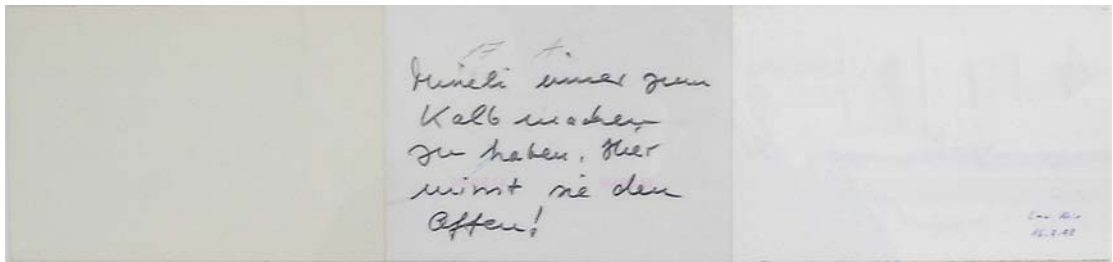 immer zum
Kalb machen
zu haben. Hier
mimt sie den
Affen!